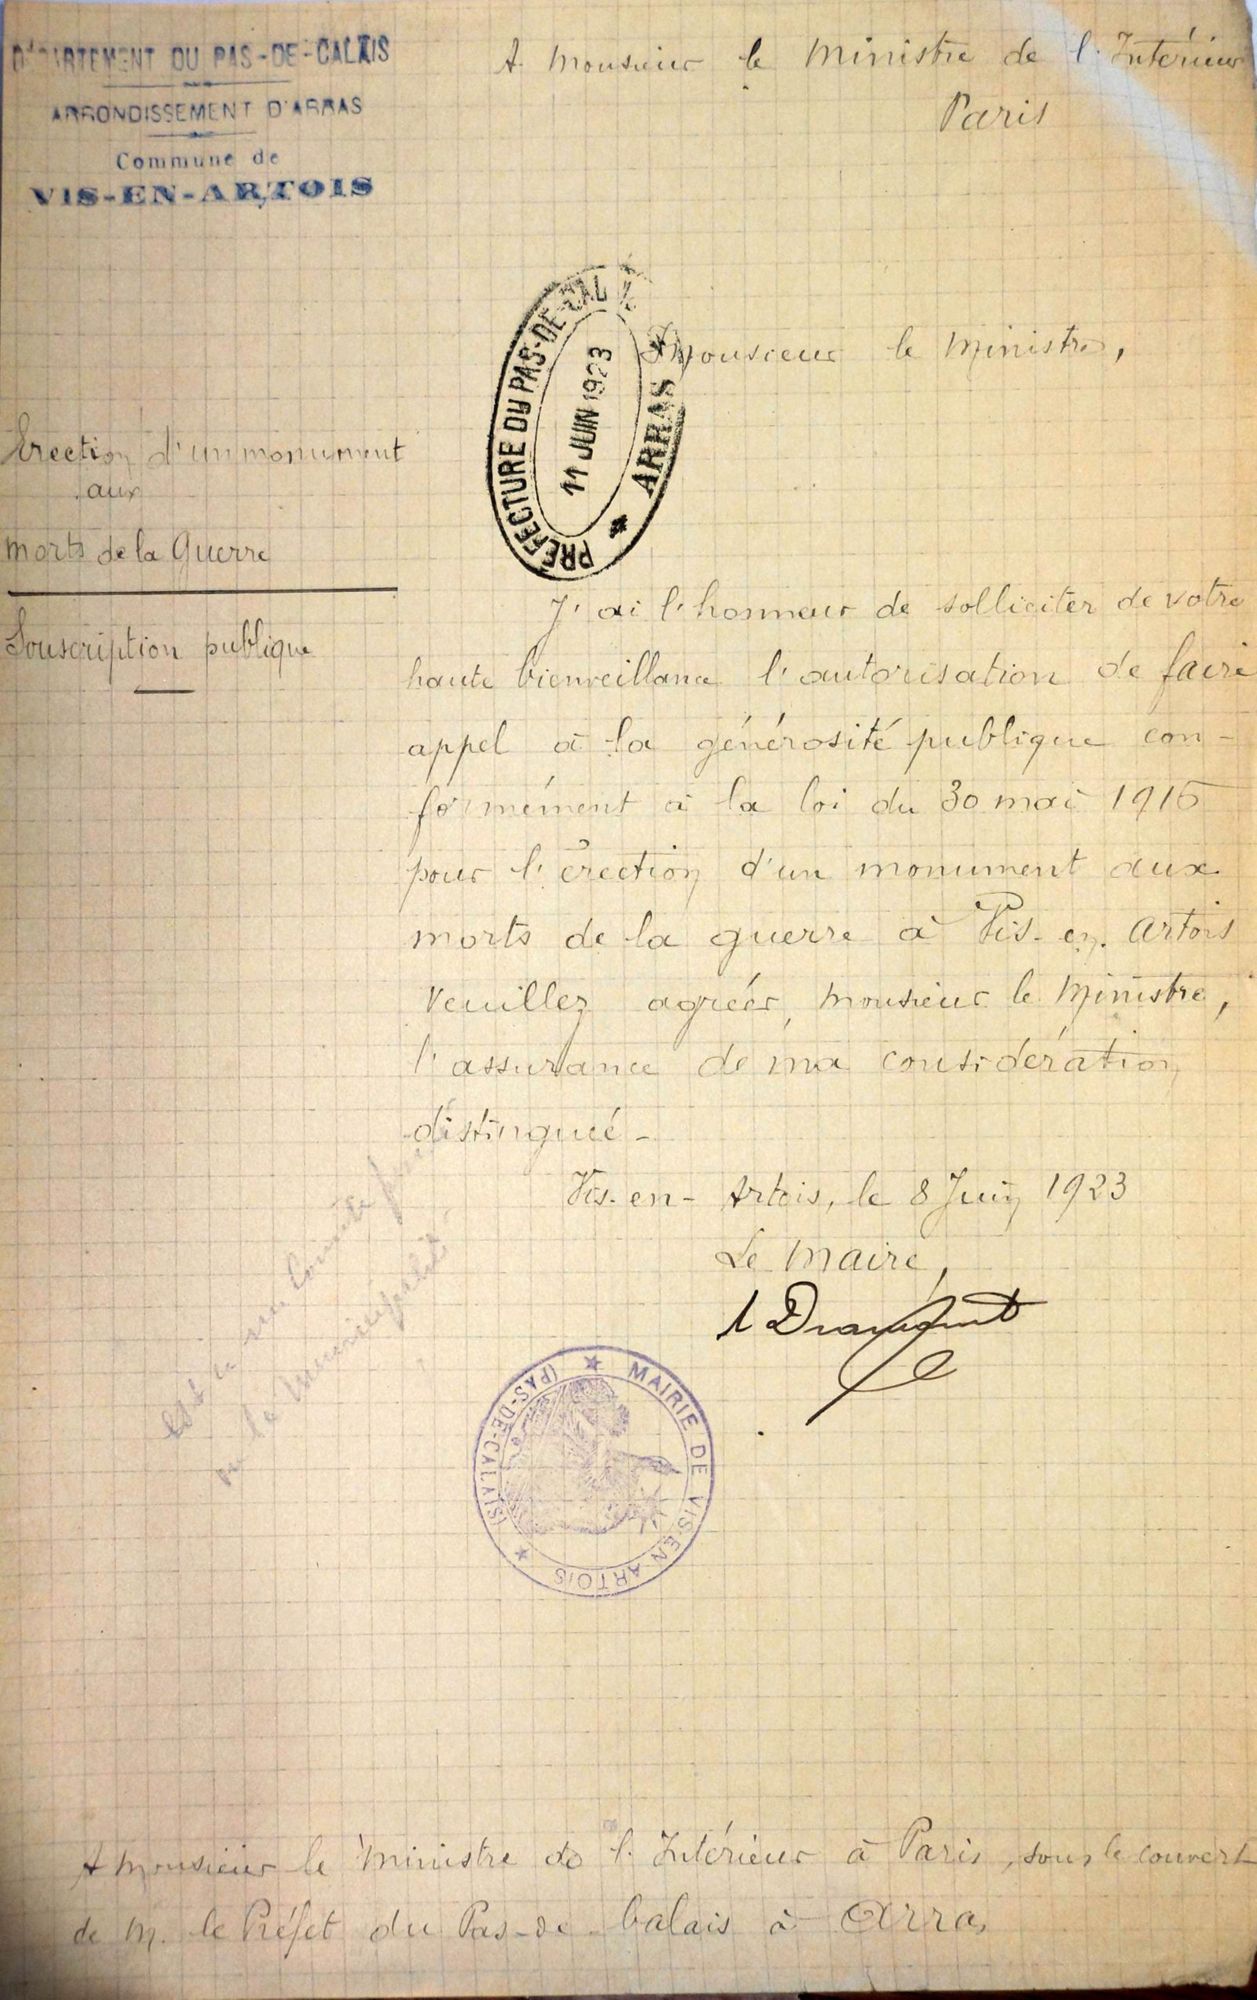 DÉPARTEMENT DU PAS-DE-CALAIS
ARRONDISSEMENT D'ARRAS
Commune de
VIS-EN-ARTOIS
A Monsieur le Ministre de l'Intérieur
Paris
PRÉFECTURE DU PAS-DE-CALAIS
11 JUIN 1923
ARRAS
Monsieur le Ministre,
Erection d'un monument
aux
morts de la Guerre
Souscription publique
J'ai l'honneur de solliciter de votre
haute bienveillance l'autorisation de faire
appel à la générosité publique con-
formément à la loi du 30 mai 1916
pour l'érection d'un monument aux
morts de la guerre à Vis-en-Artois
Veuillez agréer, Monsieur le Ministre,
l'assurance de ma considération
distinguée-
Vis-en-Artois, le 8 Juin 1923
Le Maire,
MAIRIE DE VIS-EN-ARTOIS
(PAS-DE-CALAIS)
est-ce un Comité
ou la Municipalité
A Monsieur le Ministre de l'Intérieur à Paris, sous le couvert
de M. le Préfet du Pas-de-Calais à Arras